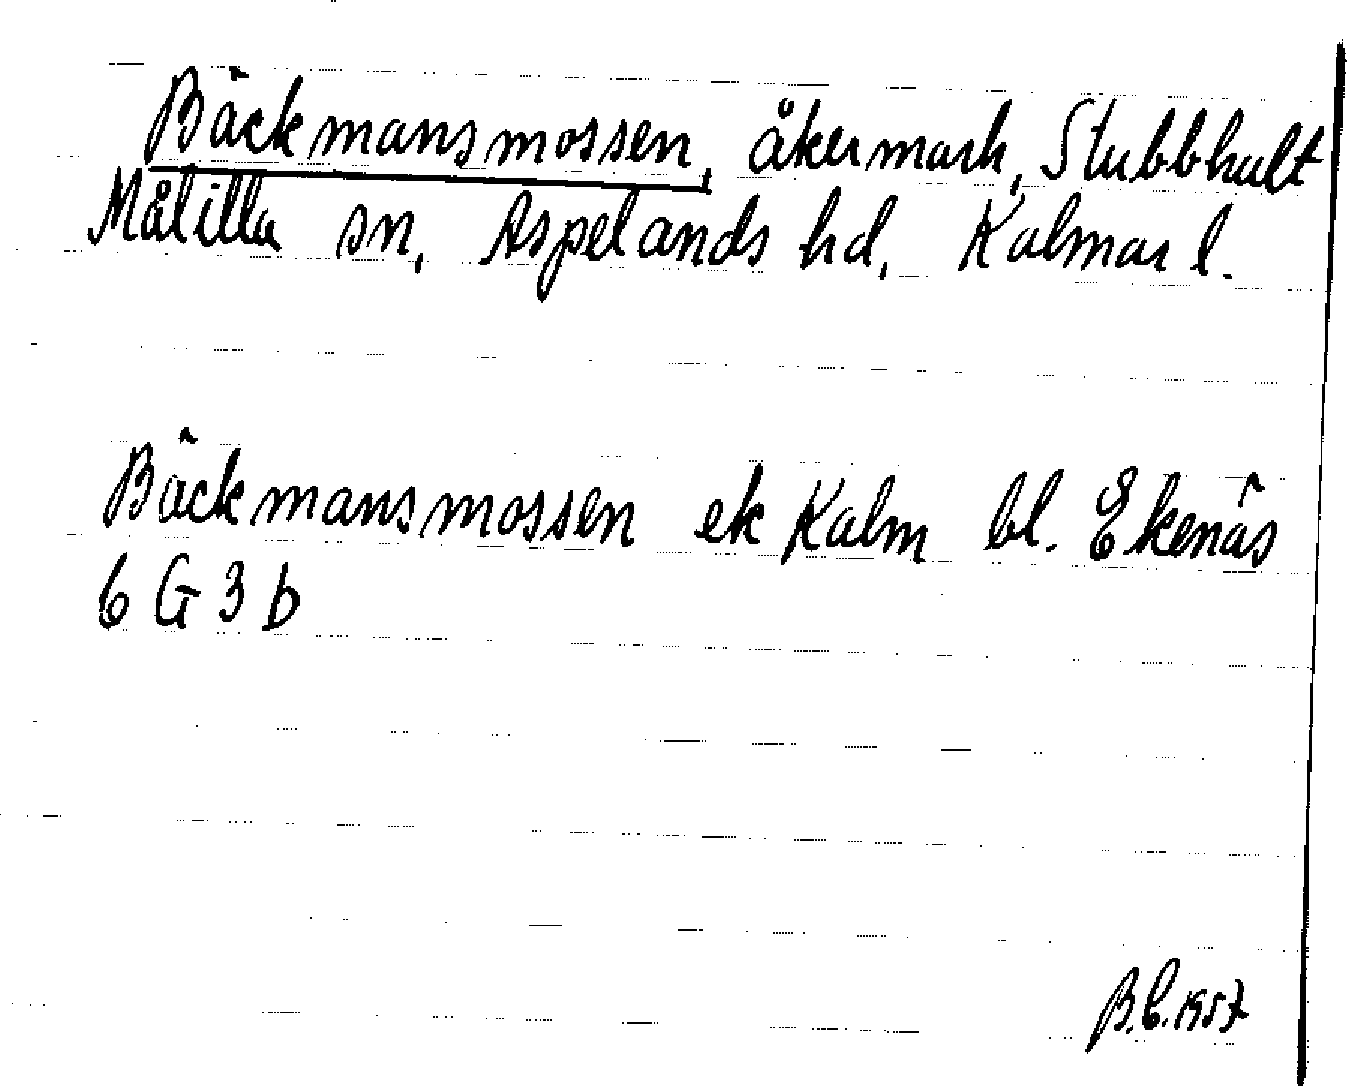 Bäckmansmossen, åkermark, Stubbhult
Målilla sn, Aspelands hd, Kalmar l.
Bäckmansmossen ek Kalm bl. Ekenäs
6 G 3 b
B.C. 1957